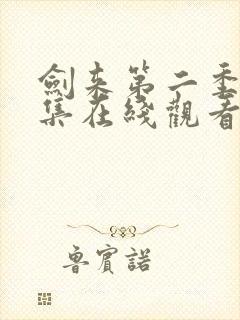 劍來第二季
集在綫觀看
魯賓諾